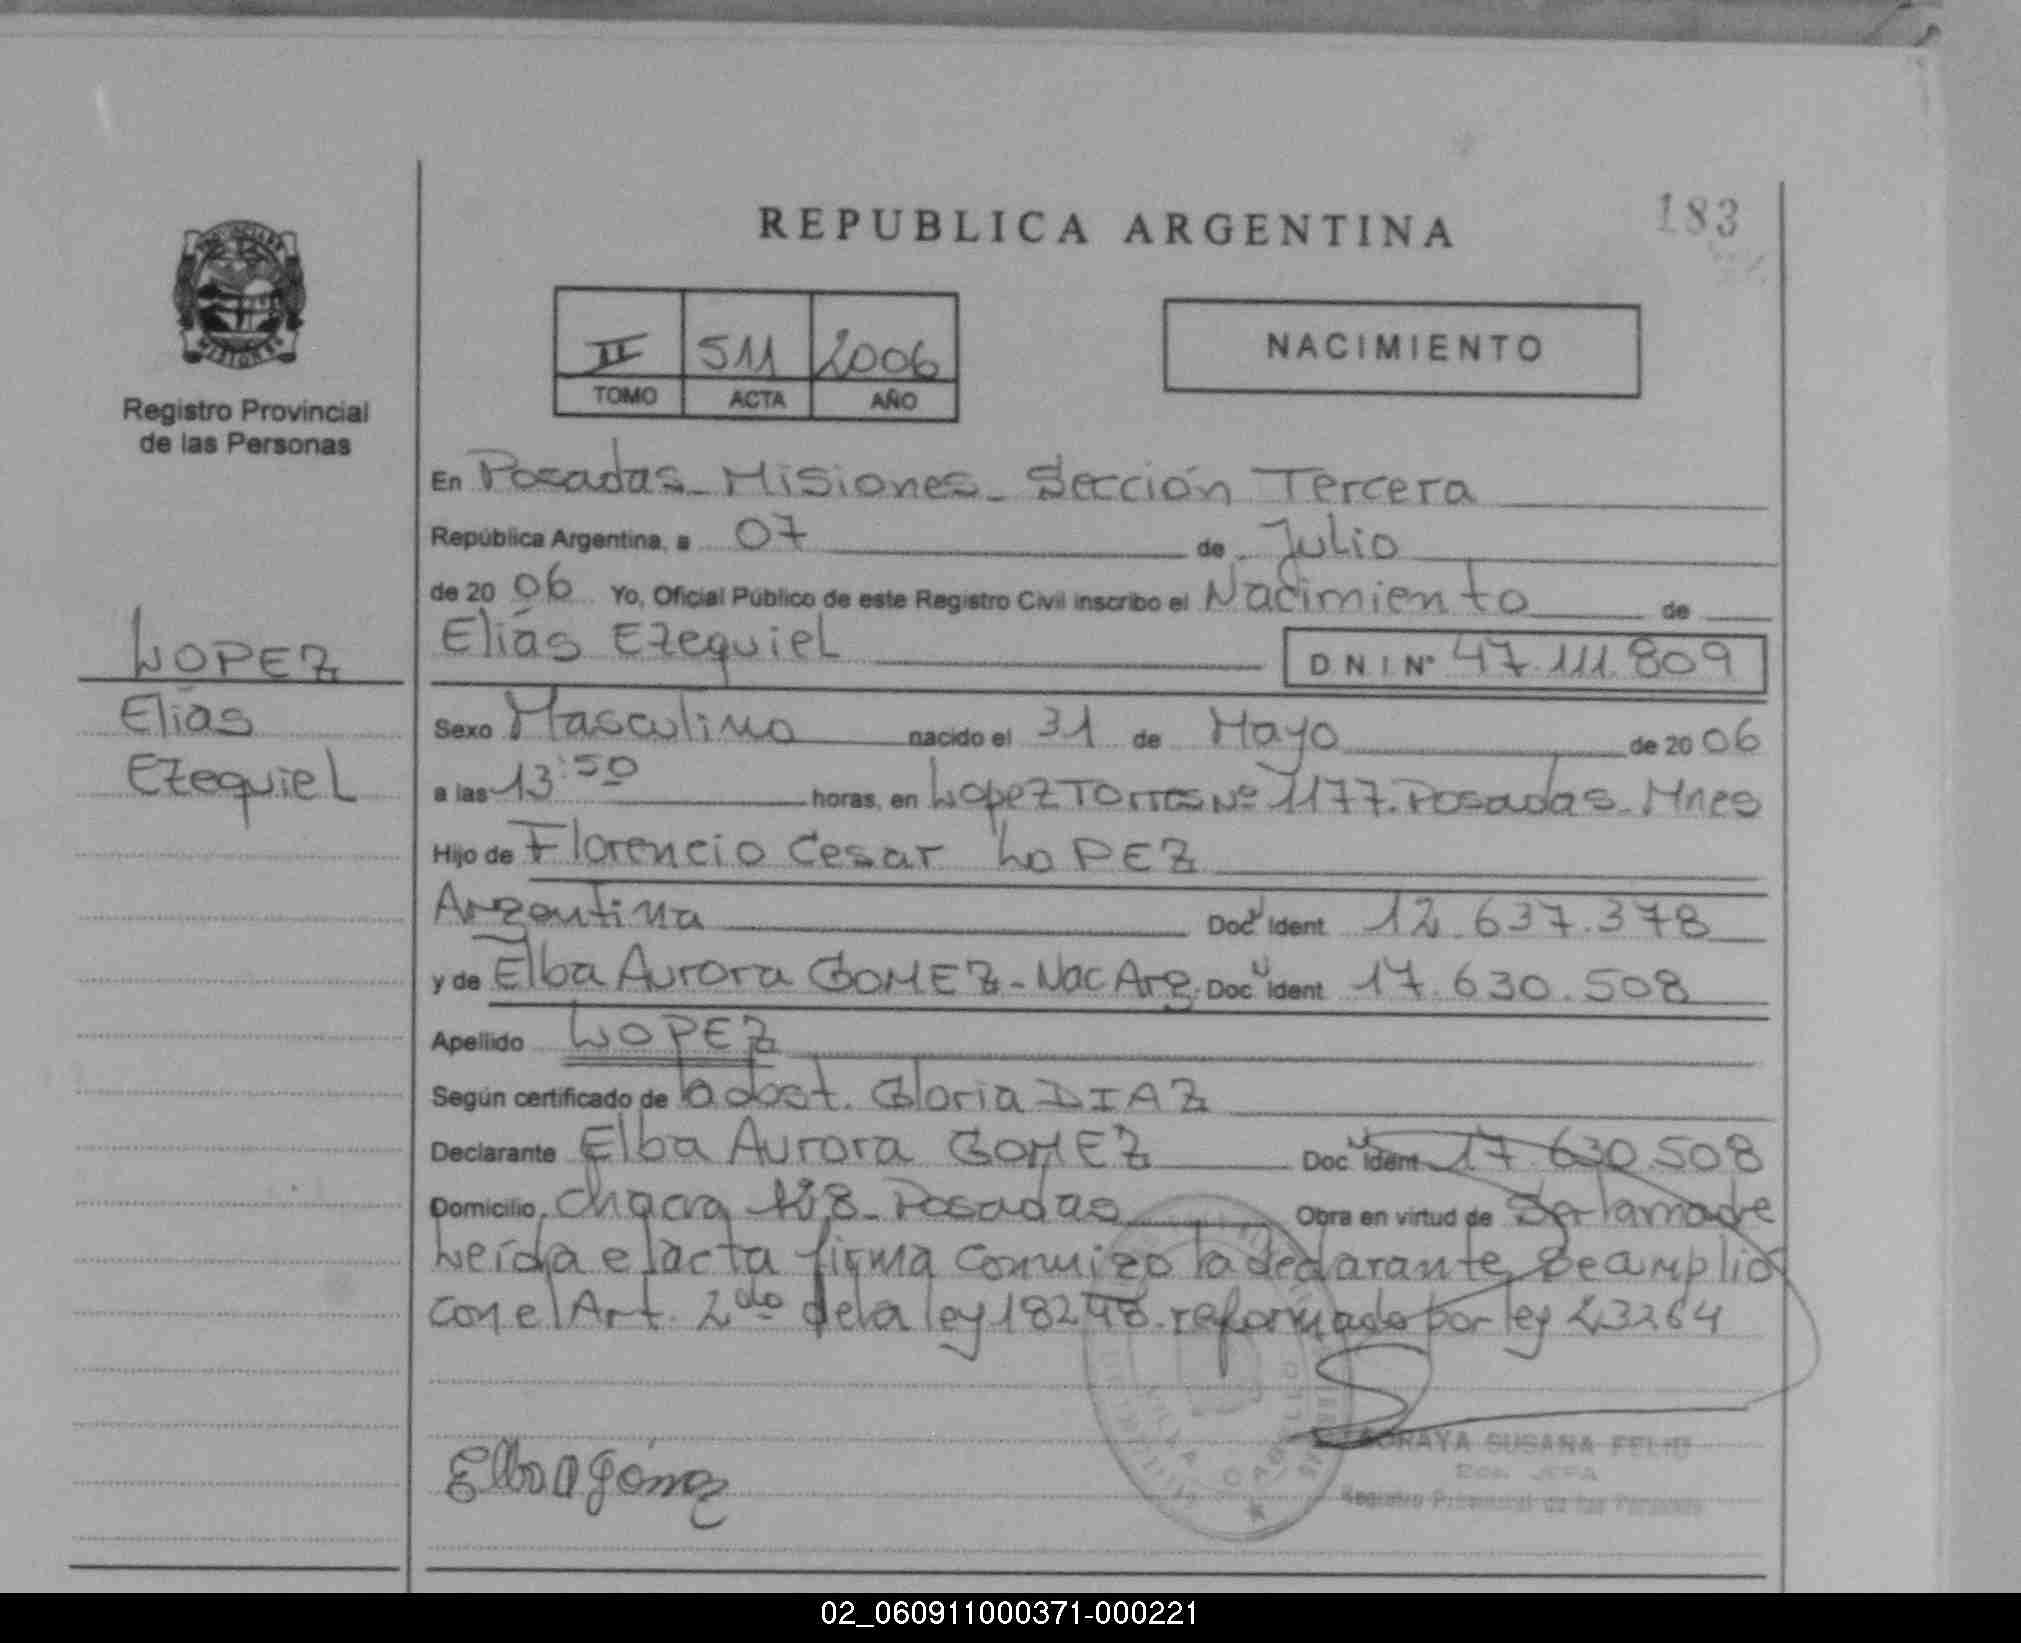 REPUBLICA ARGENTINA
183
PROVINCIA
MISIONES
Registro Provincial
de las Personas
II 511 2006
TOMO ACTA AÑO
NACIMIENTO
LOPEZ
Elías
Ezequiel
En Posadas - Misiones - Sección Tercera
República Argentina, a 07 de Julio
de 20 06 Yo, Oficial Público de este Registro Civil inscribo el Nacimiento de
Elías Ezequiel D N I Nº 47.111.809
Sexo Masculino nacido el 31 de Mayo de 20 06
a las 13:50 horas, en Lopez Torres Nº 1177. Posadas - Mnes
Hijo de Florencio Cesar LOPEZ
Argentina Doc U Ident 12.637.378
y de Elba Aurora GOMEZ - Nac Arg. Doc U Ident 17.630.508
Apellido LOPEZ
Según certificado de la obst. Gloria DIAZ
Declarante Elba Aurora GOMEZ Doc U Ident 17.630.508
Domicilio Chacra Posadas Obra en virtud de Ser la madre
Leída el acta firma conmigo la declarante. Se amplió
con el Art. 2do de la ley 18248. reformado por ley 23264
Elba A Gómez
SORAYA SUSANA FELIU
JEFA
Registro Provincial de las Personas
02_060911000371-000221